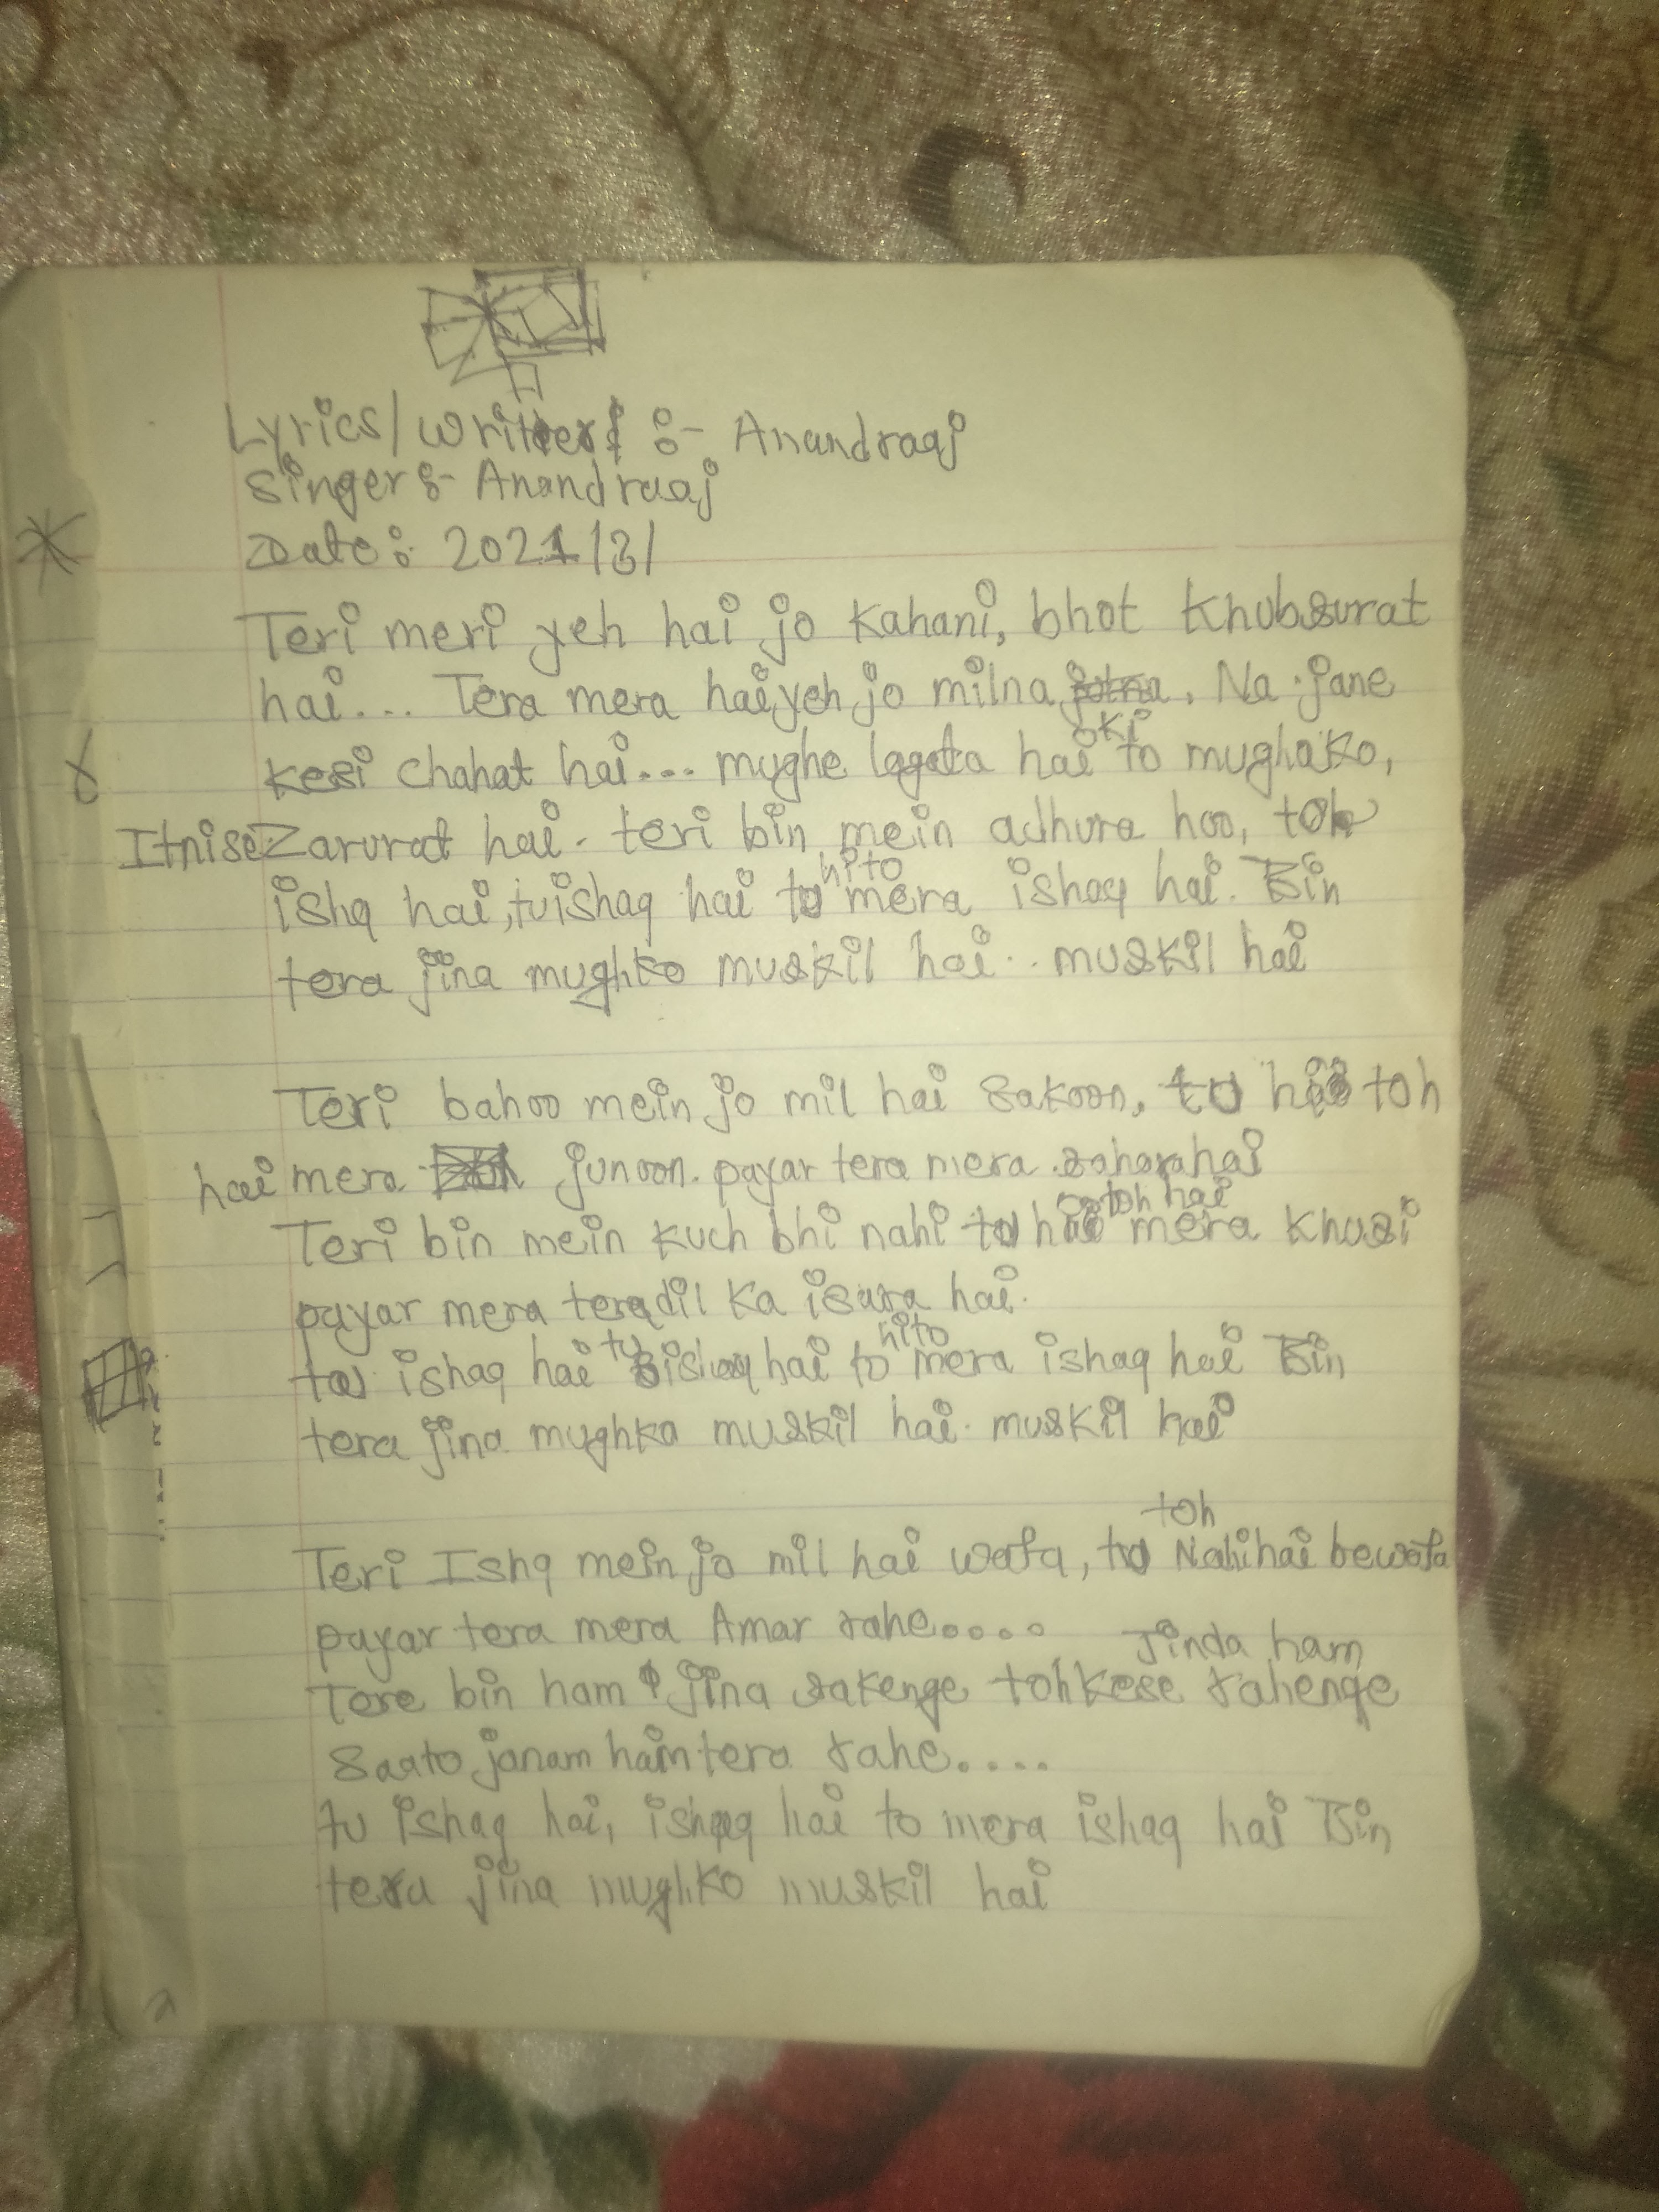 Lyrics/writter :- Anandraaj
Singer :- Anandraaj
Date : 2021/3/
Teri meri yeh hai jo Kahani, bhot Khubsurat
hai... Tera mera hai yeh jo milna. Na jane
kesi chahat hai... mughe lagata hai ki to mughako,
Itni se Zarurat hai. teri bin mein adhura hoo, toh
ishq hai, tu ishaq hai to hi to mera ishaq hai. Bin
tera jina mughko muskil hai.. muskil hai
Teri bahoo mein jo mil hai sakoon, tu hi toh
hai mera junoon. payar tera mera sahara hai
Teri bin mein kuch bhi nahi tu hi toh hai mera Khusi
payar mera tera dil Ka isara hai.
tu ishaq hai tu ishaq hai to hi to mera ishaq hai Bin
tera jina mughko muskil hai. muskil hai
Teri Ishq mein jo mil hai wafa, tu toh Nahi hai bewafa
payar tera mera Amar rahe....
Jinda ham
Tere bin ham jina sakenge toh kese rahenge
Saato janam ham tera rahe....
tu ishaq hai, ishaq hai to mera ishaq hai Bin
tera jina mughko muskil hai